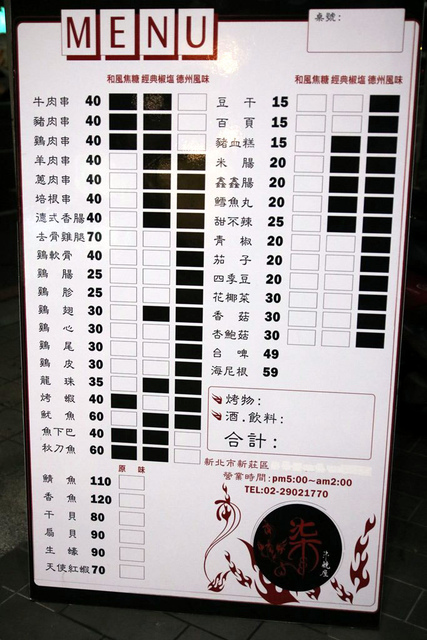 MENU
桌號:
和風焦糖 經典椒塩 德州風味
牛肉串 40
豬肉串 40
鷄肉串 40
羊肉串 40
蔥肉串 40
培根串 40
德式香腸 40
去骨雞腿 70
鷄軟骨 40
鷄腸 25
鷄胗 25
鷄翅 30
鷄心 30
鷄尾 30
鷄皮 30
龍珠 35
烤蝦 40
魷魚 60
魚下巴 40
秋刀魚 60
原味
鯖魚 110
香魚 120
干貝 80
扇貝 90
生蠔 90
天使紅蝦 70
和風焦糖 經典椒塩 德州風味
豆干 15
百頁 15
豬血糕 15
米腸 20
鑫鑫腸 20
鱈魚丸 20
甜不辣 25
青椒 20
茄子 20
四季豆 20
花椰菜 30
香菇 30
杏鮑菇 30
台啤 49
海尼根 59
烤物:
酒.飲料:
合計:
新北市新莊區
營業時間:pm5:00~am2:00
TEL:02-29021770
柒